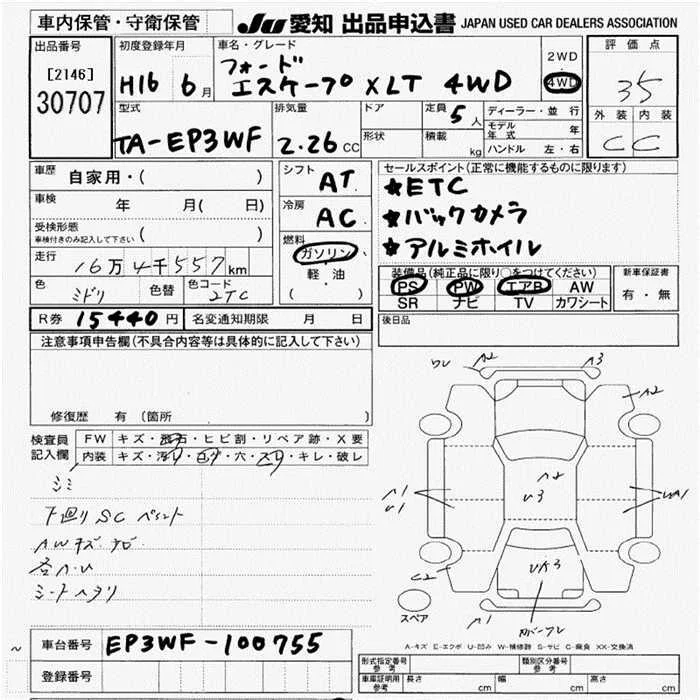 車内保管・守衛保管
Ju 愛知 出品申込書 JAPAN USED CAR DEALERS ASSOCIATION
出品番号
[2146]
30707
初度登録年月
H16 6月
車名・グレード
フォード
エスケープ XLT 4WD
2WD
4WD
評価点
35
外装 内装
C C
型式
TA-EP3WF
排気量
2.26 CC
ドア
形状
定員 5人
積載 kg
ディーラー・並行
モデル年式 年
ハンドル 左・右
車歴 自家用・( )
車検 年 月( 日)
受検形態
車検付きのみ記入して下さい ( )
走行 16万4千557km
色 ミドリ 色替 色コード 2TC
シフト AT
冷房 AC
燃料
ガソリン
軽・油
( )
セールスポイント(正常に機能するものに限ります)
★ETC
★バックカメラ
★アルミホイル
装備品(純正品に限り○をつけてください)
PS PW エアB AW
SR ナビ TV カワシート
新車保証書
有・無
R券 15440円 名変通知期限 月 日
後日品
注意事項申告欄(不具合内容等は具体的に記入して下さい)
修復歴 有(箇所 )
検査員記入欄
FW キズ・飛石・ヒビ割・リペア跡・X要
内装 キズ・汚レ・コゲ・穴・スリ・キレ・破レ
シミ
下廻り SC ペイント
AWキズ
各A・U
シートヘタリ
ワレ A2 A3
A2
A2
U3
A1
U1
UA1
UA3
C2
A1
スペア
A-キズ E-エクボ U-凹み W-補修跡 S-サビ C-腐食 XX-交換済
車台番号 EP3WF-100755
登録番号
型式指定番号 参考 類別区分番号 参考
車庫証明用 参考 長さ cm 幅 cm 高さ cm